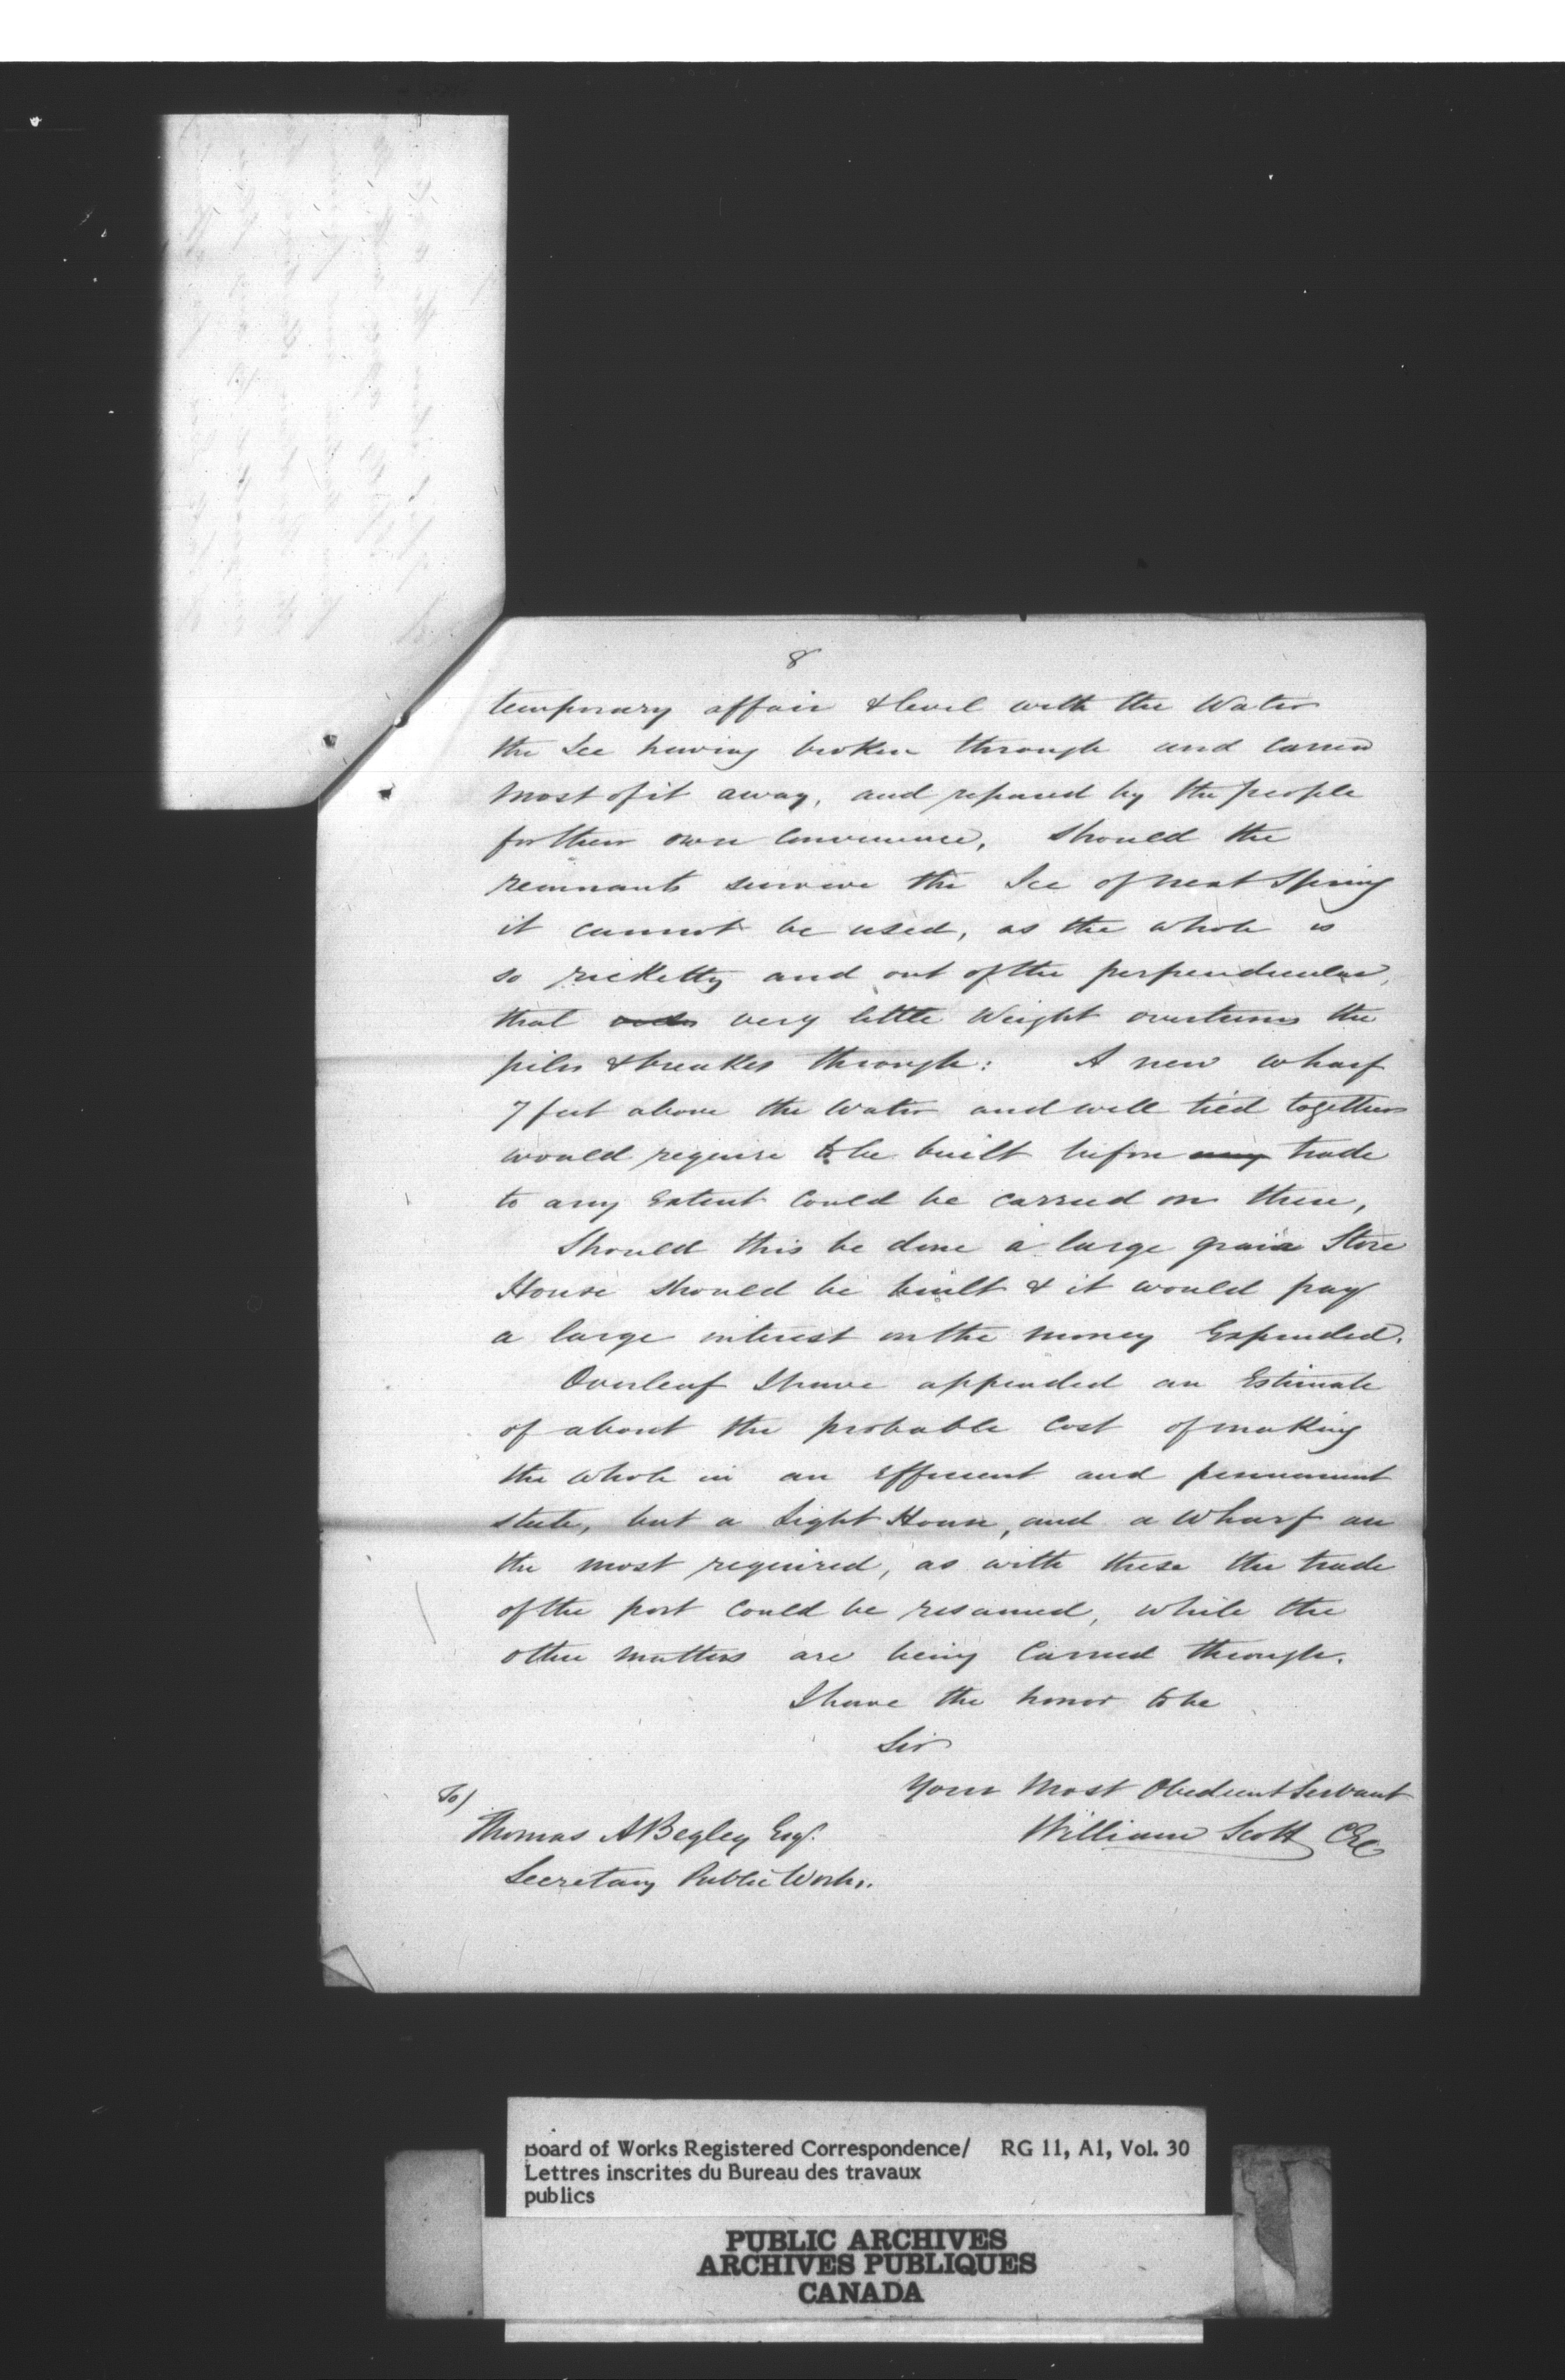 8
temporary affair & level with the Water
the Ice having broken through and carried
most of it away, and repaired by the people
for their own Convenience, should the
remnants survive the Ice of next Spring
it cannot be used, as the whole is
so ricketty and out of the perpendicular,
that very little Weight overturns the
piles & breakes through: A new wharf
7 feet above the Water and well tied together
would require to be built before any trade
to any Extent could be carried on there,
Should this be done a large grain Store
House should be built & it would pay
a large interest on the money Expended.
Overleaf I have appended an Estimate
of about the probable Cost of making
the whole in an Efficient and permanent
state, but a Light House, and a Wharf are
the most required, as with these the trade
of the port could be resumed, while the
other matters are being Carried through.
I have the honor to be
Sir
Your Most Obedient Servant
William Scott CE
To/
Thomas A Begley Esqr.
Secretary Public Works.
Board of Works Registered Correspondence/ RG 11, A1, Vol. 30
Lettres inscrites du Bureau des travaux
publics
PUBLIC ARCHIVES
ARCHIVES PUBLIQUES
CANADA